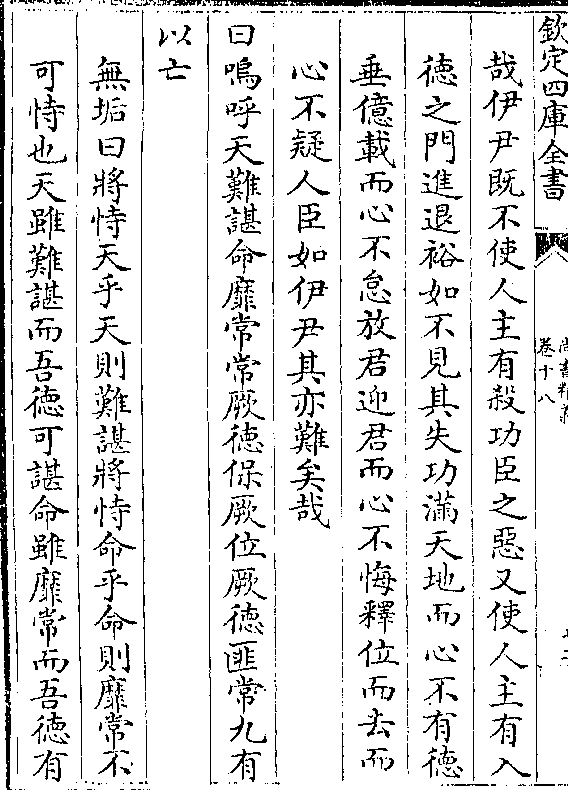 欽定四庫全書
尚書精義
卷十八
哉伊尹既不使人主有殺功臣之惡又使人主有入
德之門進退裕如不見其失功滿天地而心不有德
垂億載而心不怠放君迎君而心不悔釋位而去而
心不疑人臣如伊尹其亦難矣哉
曰嗚呼天難諶命靡常常厥德保厥位厥德匪常九有
以亡
無垢曰將恃天乎天則難諶將恃命乎命則靡常不
可恃也天雖難諶而吾德可諶命雖靡常而吾德有